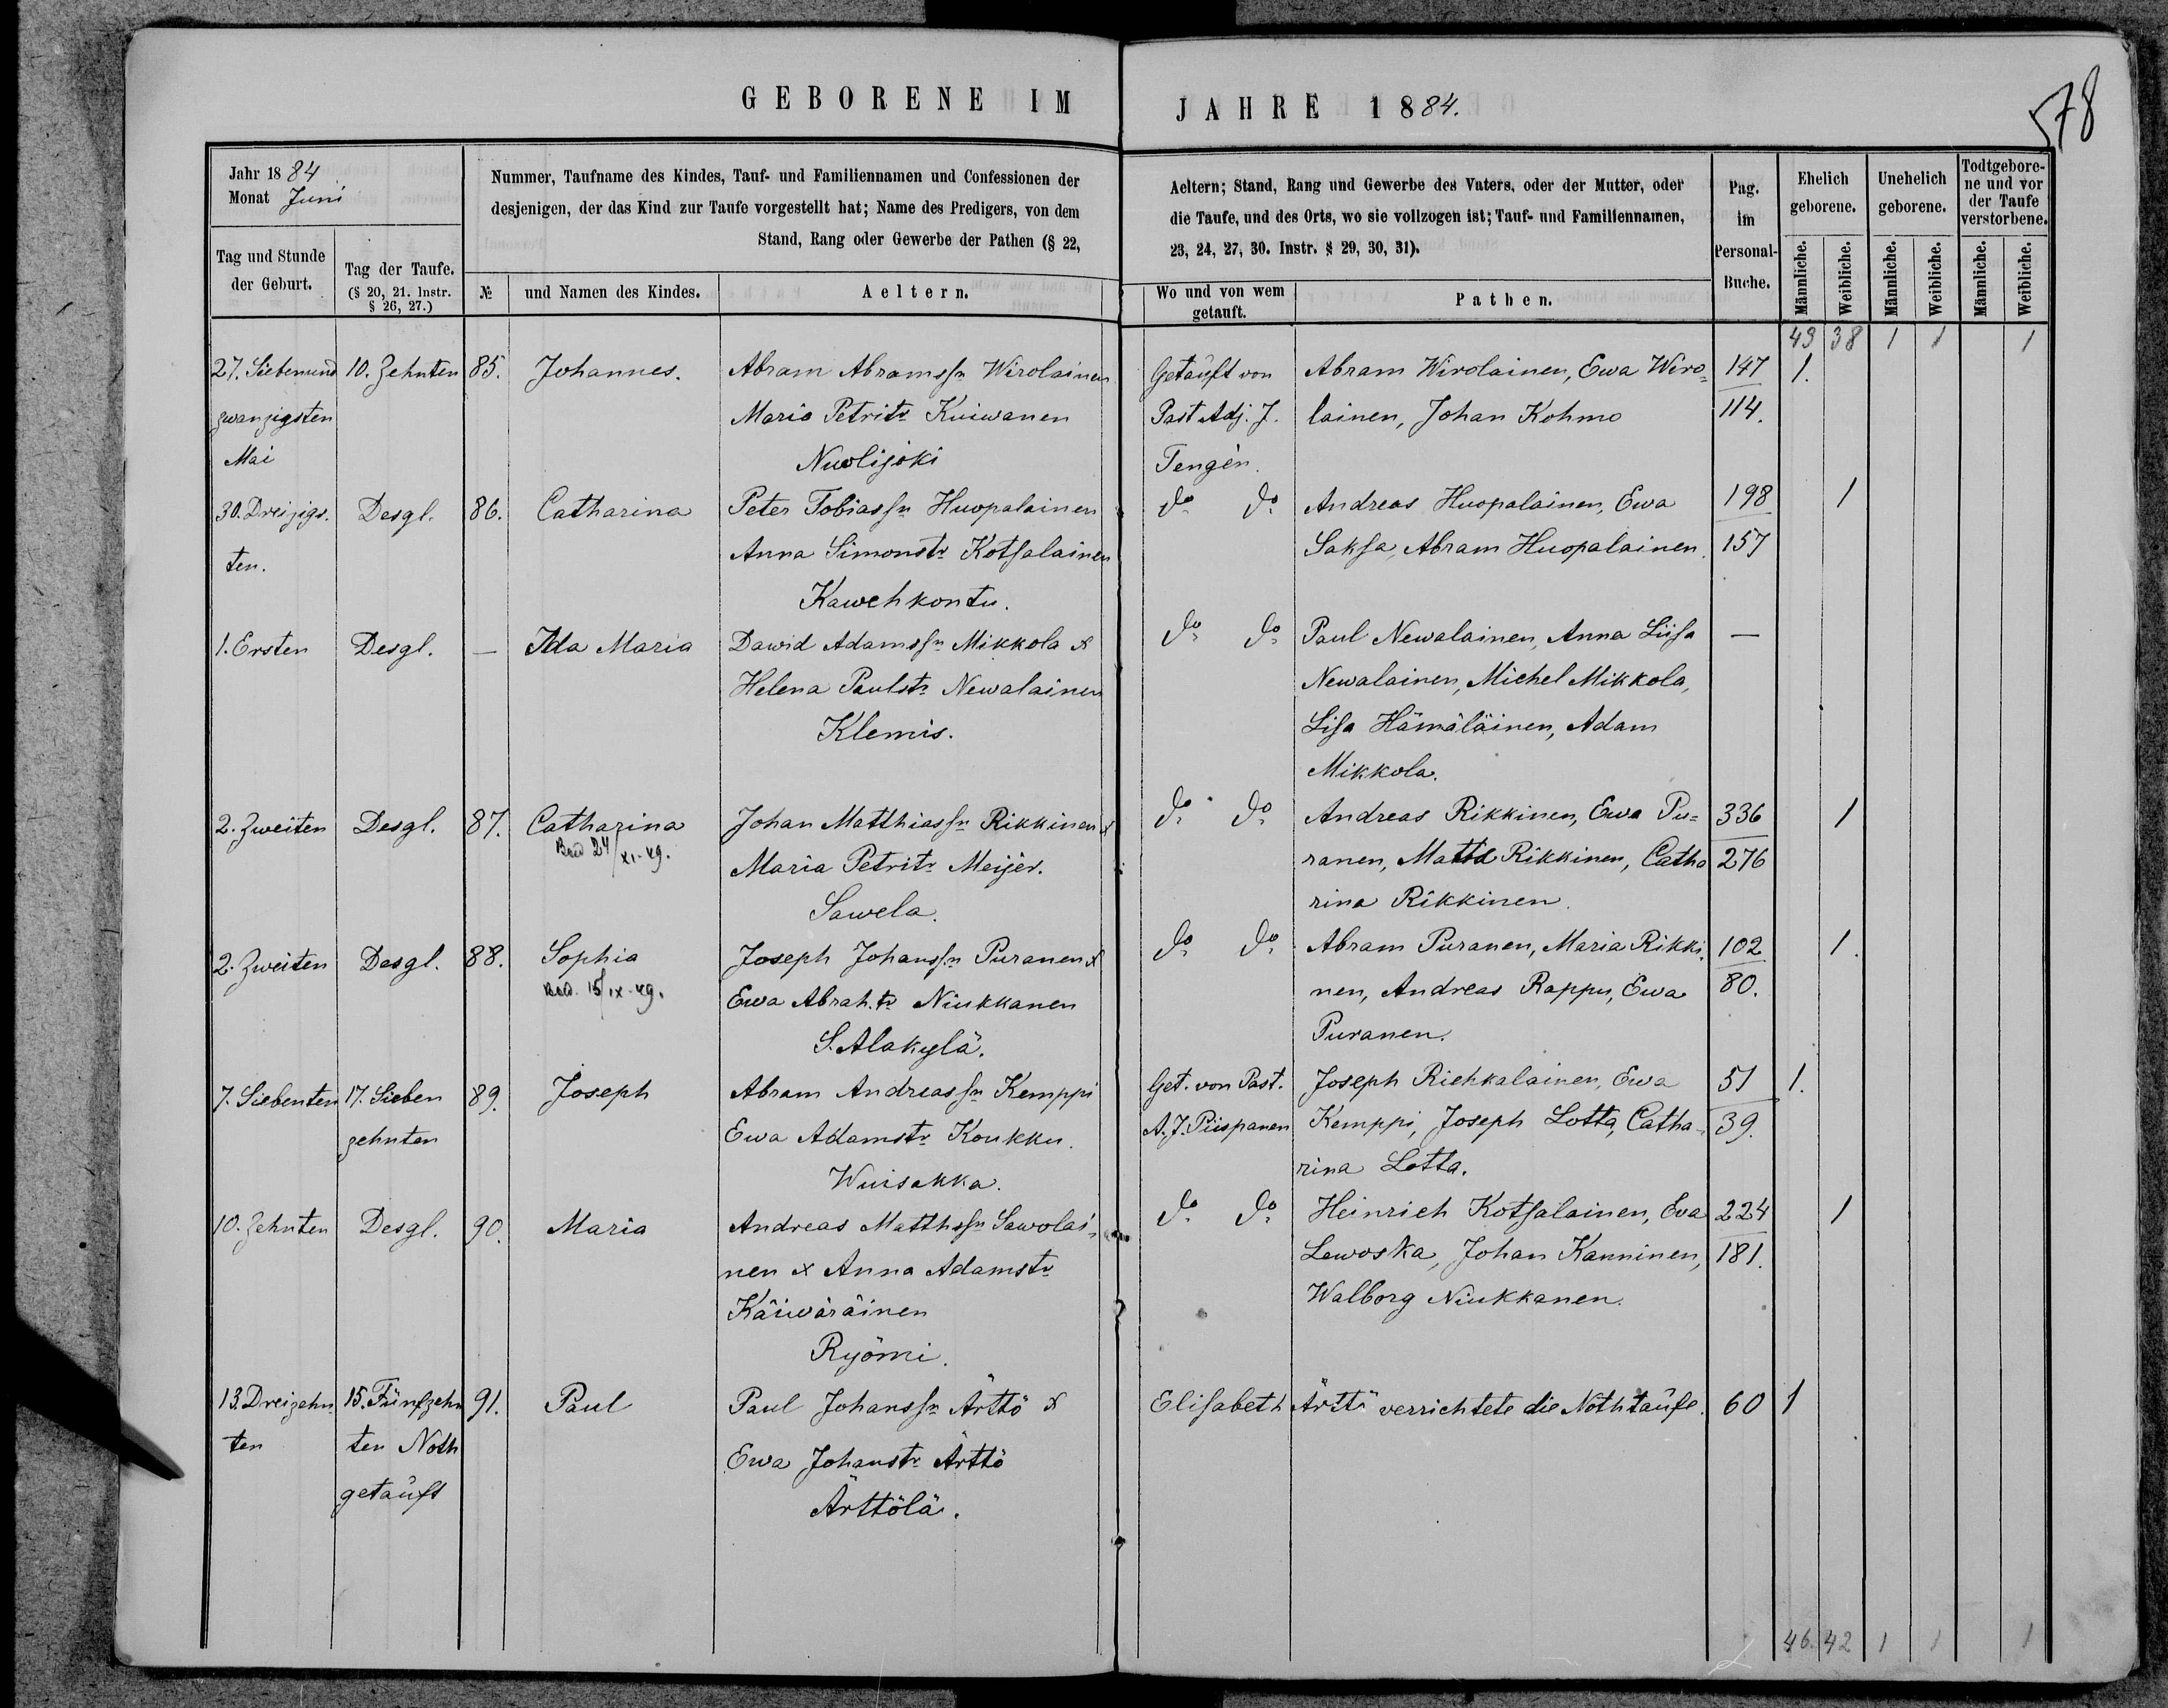 GEBORENE IM JAHRE 1884.
578
Jahr 1884
Monat Juni
Tag und Stunde der Geburt.
Tag der Taufe.
(§ 20, 21. Instr. § 26, 27.)
Nummer, Taufname des Kindes, Tauf- und Familiennamen und Confessionen der
desjenigen, der das Kind zur Taufe vorgestellt hat; Name des Predigers, von dem
Stand, Rang oder Gewerbe der Pathen (§ 22,
№
und Namen des Kindes.
Aeltern.
Aeltern; Stand, Rang und Gewerbe des Vaters, oder der Mutter, oder
die Taufe, und des Orts, wo sie vollzogen ist; Tauf- und Familiennamen,
23, 24, 27, 30. Instr. § 29, 30, 31).
Wo und von wem getauft.
Pathen.
Pag. im Personal-Buche.
Ehelich geborene.
Unehelich geborene.
Todtgeborene und vor der Taufe verstorbene.
Männliche. Weibliche. Männliche. Weibliche. Männliche. Weibliche.
43 38 1 1 1
27. Siebenund 10. Zehnten 85. Johannes. Abram Abramssn Wirolainen Getäuft von Abram Wirolainen, Ewa Wiro= 147 1.
zwanzigsten Maria Petritr Kuiwanen Past Adj. J. lainen, Johan Kohmo 114.
Mai Nuolijoki Tengén.
30. Dreizigs. Desgl. 86. Catharina Peter Tobiassn Huopalainen do do Andreas Huopalainen, Ewa 198 1
ten. Anna Simonstr Kotsalainen Saksa, Abram Huopalainen. 157
Kawehkontu.
1. Ersten Desgl. — Ida Maria Dawid Adamssn Mikkola & do do Paul Newalainen, Anna Liisa —
Helena Paulstr Newalainen Newalainen, Michel Mikkola,
Klemis. Lisa Hämäläinen, Adam
Mikkola.
2. Zweiten Desgl. 87. Catharina Johan Matthiassn Rikkinen & do do Andreas Rikkinen, Ewa Pu= 336 1
24/XI-49. Maria Petritr Meijer. ranen, Matts Rikkinen, Catha 276
Sawela. rina Rikkinen.
2. Zweiten Desgl. 88. Sophia Joseph Johanssn Puranen & do do Abram Puranen, Maria Rikki- 102 1.
15/IX-49. Ewa Abrah.tr Niukkanen nen, Andreas Rappu, Ewa 80.
S. Alakylä. Puranen.
7. Siebenten 17. Sieben 89. Joseph Abram Andreassn Kemppi Get. von Past. Joseph Riehkalainen, Ewa 51 1.
zehnten Ewa Adamstr Koukku. A. J. Piispanen Kemppi, Joseph Lotta, Catha- 39.
Wuisakka. rina Lotta.
10. Zehnten Desgl. 90. Maria Andreas Matthssn Sawolai- do do Heinrich Kotsalainen, Eva 224 1
nen & Anna Adamstr Lewoska, Johan Kanninen, 181.
Käiwäräinen Walborg Niukkanen.
Ryömi.
13. Dreizehn 15. Fünfzehn 91. Paul Paul Johanssn Ärttö & Elisabeth Ärttö verrichtete die Nothtäufe. 60 1
ten ten Noth Ewa Johanstr Ärttö
getäuft Ärttölä.
46. 42 1 1 1